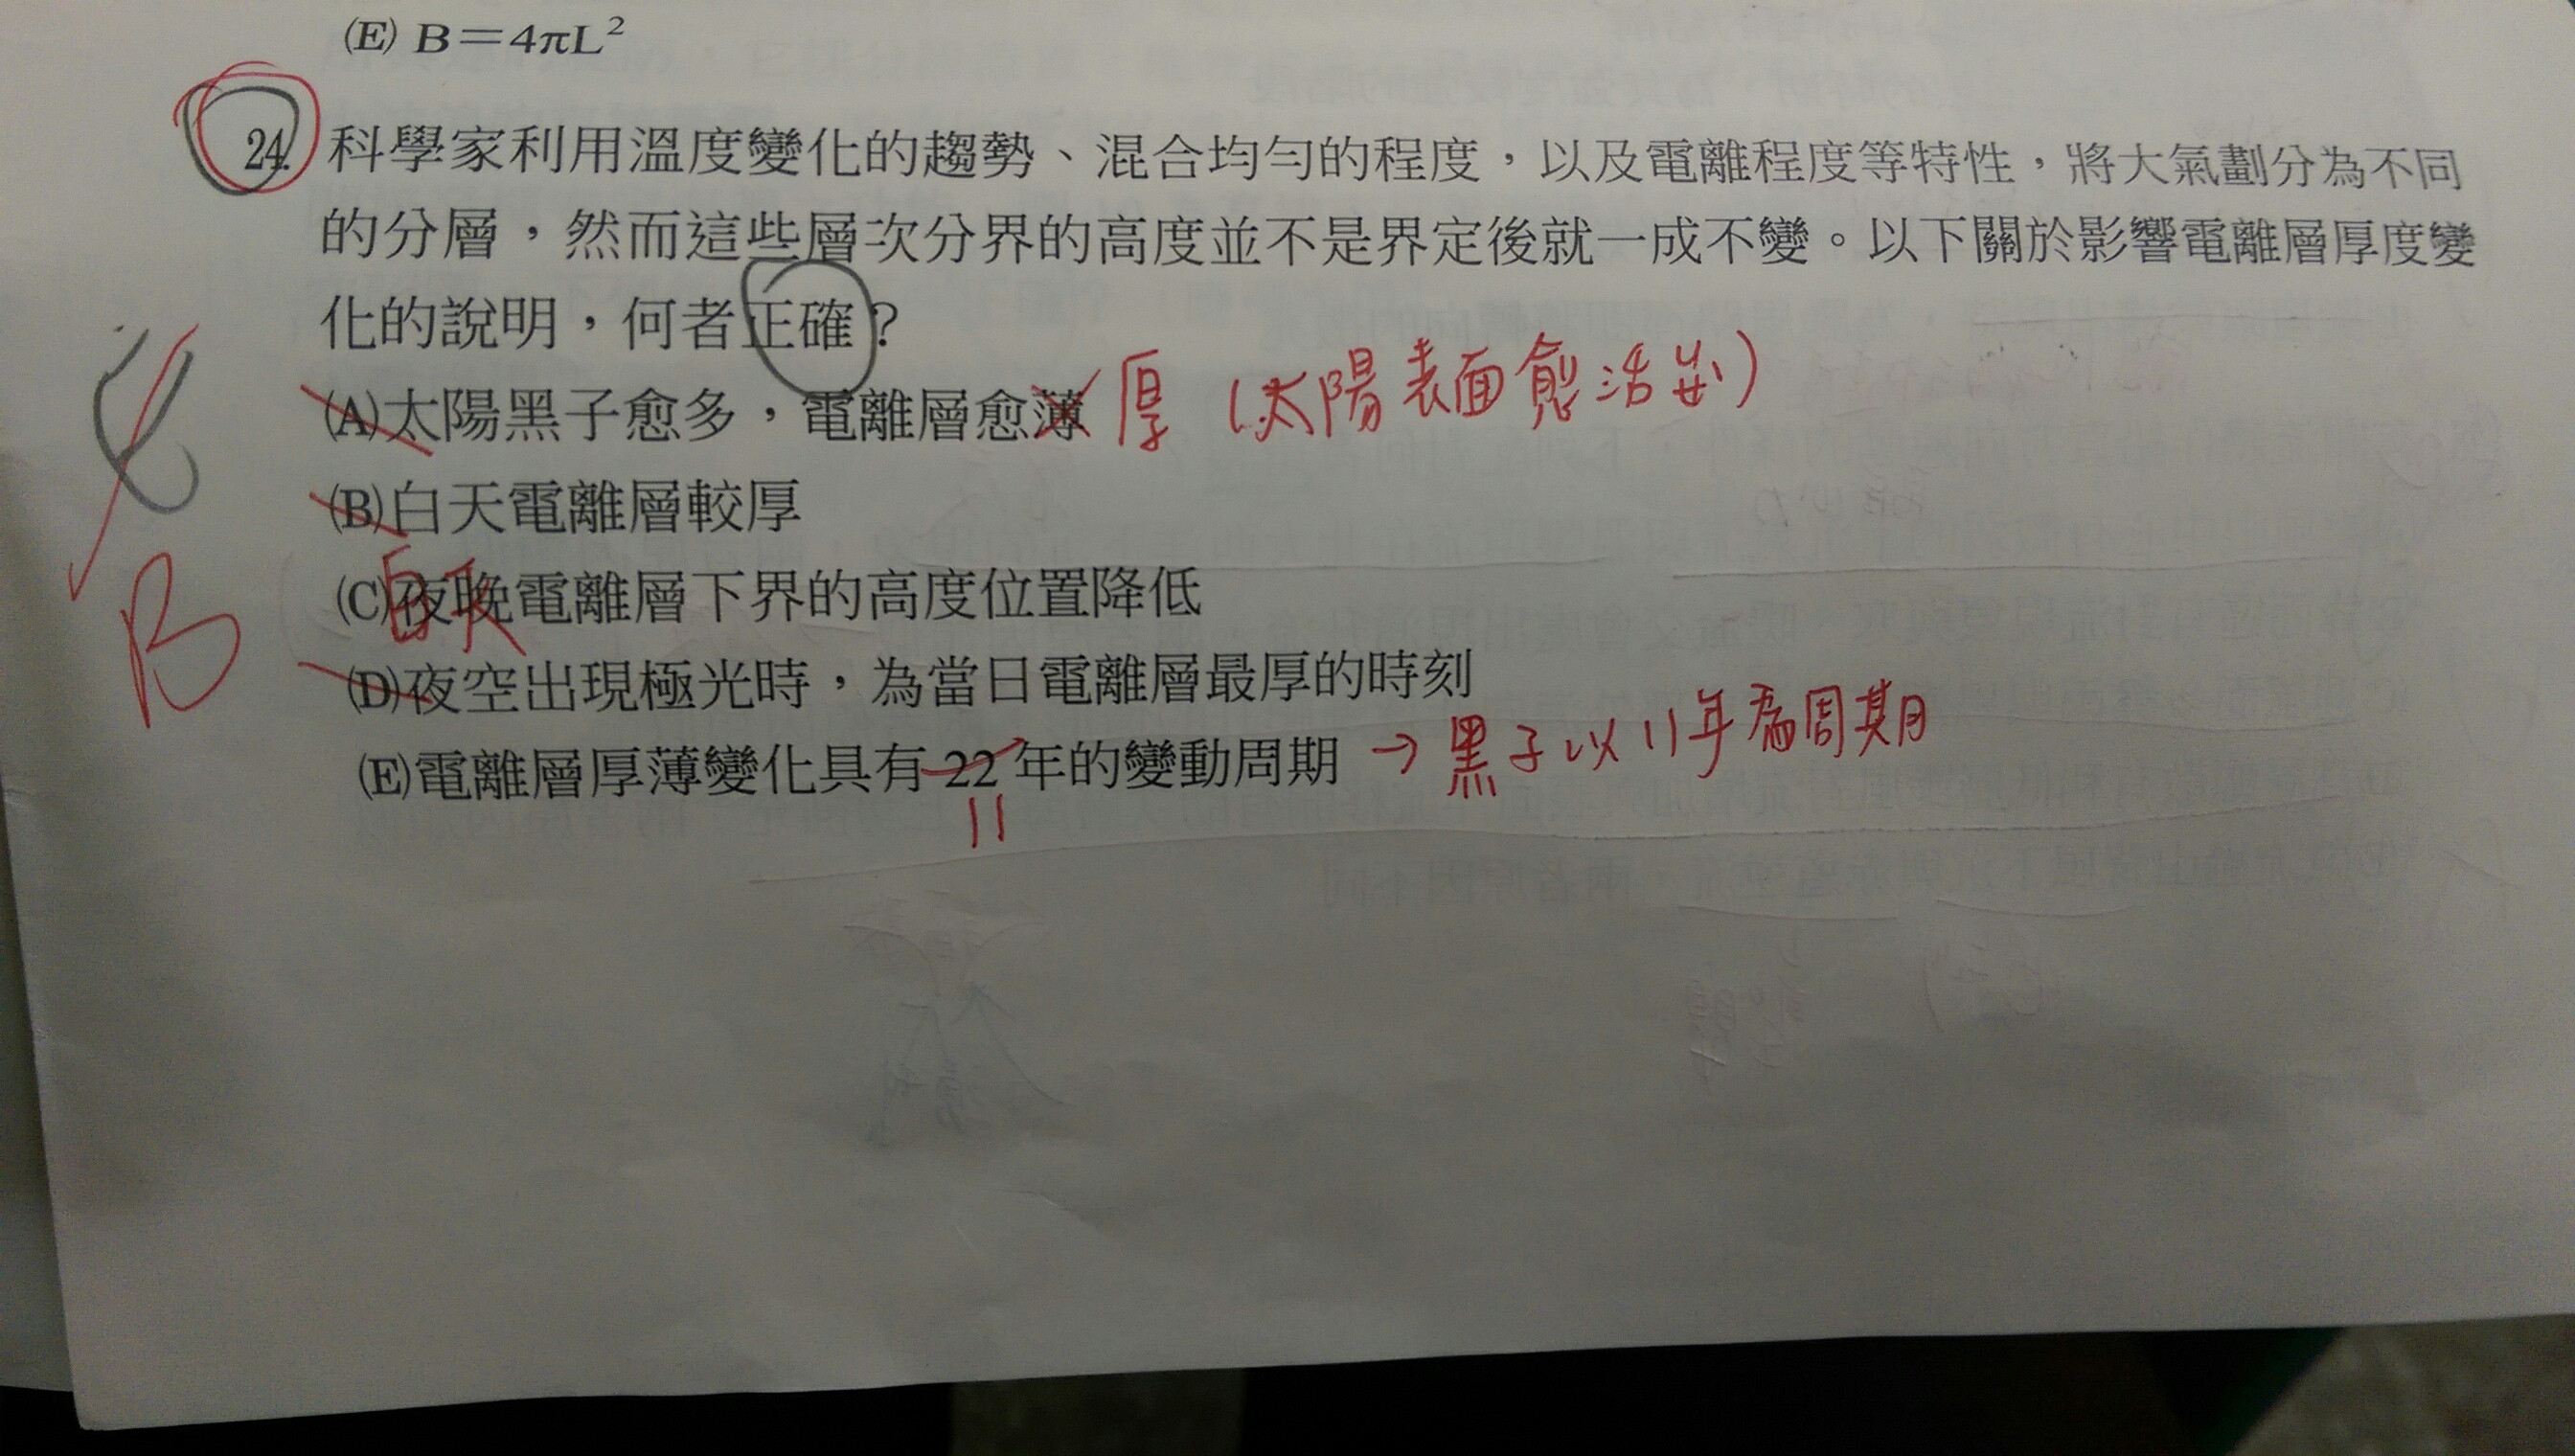 (E) B＝4πL²
24. 科學家利用溫度變化的趨勢、混合均勻的程度，以及電離程度等特性，將大氣劃分為不同
的分層，然而這些層次分界的高度並不是界定後就一成不變。以下關於影響電離層厚度變
化的說明，何者正確？
(A)太陽黑子愈多，電離層愈薄 厚 (太陽表面愈活
(B)白天電離層較厚
B
白天
(C)夜晚電離層下界的高度位置降低
(D)夜空出現極光時，為當日電離層最厚的時刻
(E)電離層厚薄變化具有 22 年的變動周期 → 黑子以11年為周期
11